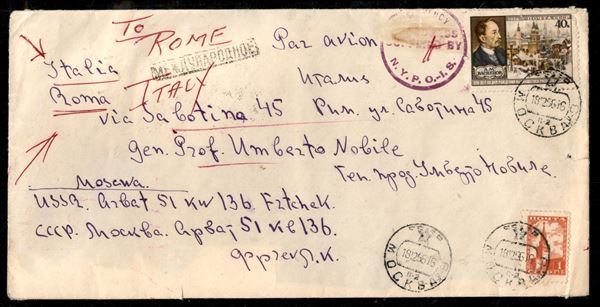 To
ROME
ITALY
МЕЖДУНАРОДНОЕ
Par avion
BY
N.Y.P.O.-I.S.
ПОЧТА СССР
40 к
Italia
Roma
Италия
via Sabotina 45
Рим. ул. Саботина 45
gen. Prof. Umberto Nobile
Ген. проф. Умберто Нобиле
Moscwa.
USSR. Arbat 51 kw/136. Frtchek.
СССР. Москва. Арбат 51 кв/136.
МОСКВА
МОСКВА
МОСКВА
ПОЧТА